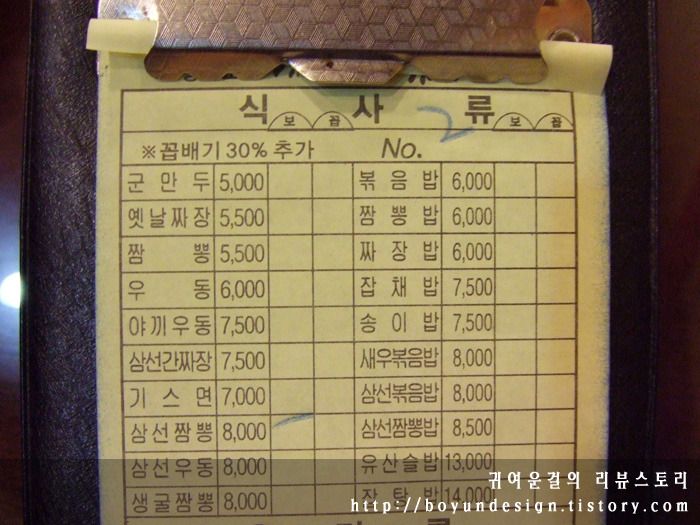 식 사 류
보 꼽 보 꼽
※꼽배기 30% 추가 No. 2
군만두 5,000 볶음밥 6,000
옛날짜장 5,500 짬뽕밥 6,000
짬뽕 5,500 짜장밥 6,000
우동 6,000 잡채밥 7,500
야끼우동 7,500 송이밥 7,500
삼선간짜장 7,500 새우볶음밥 8,000
기스면 7,000 삼선볶음밥 8,000
삼선짬뽕 8,000 삼선짬뽕밥 8,500
삼선우동 8,000 유산슬밥 13,000
생굴짬뽕 8,000 잡탕밥 14,000
귀여운걸의 리뷰스토리
http://boyundesign.tistory.com